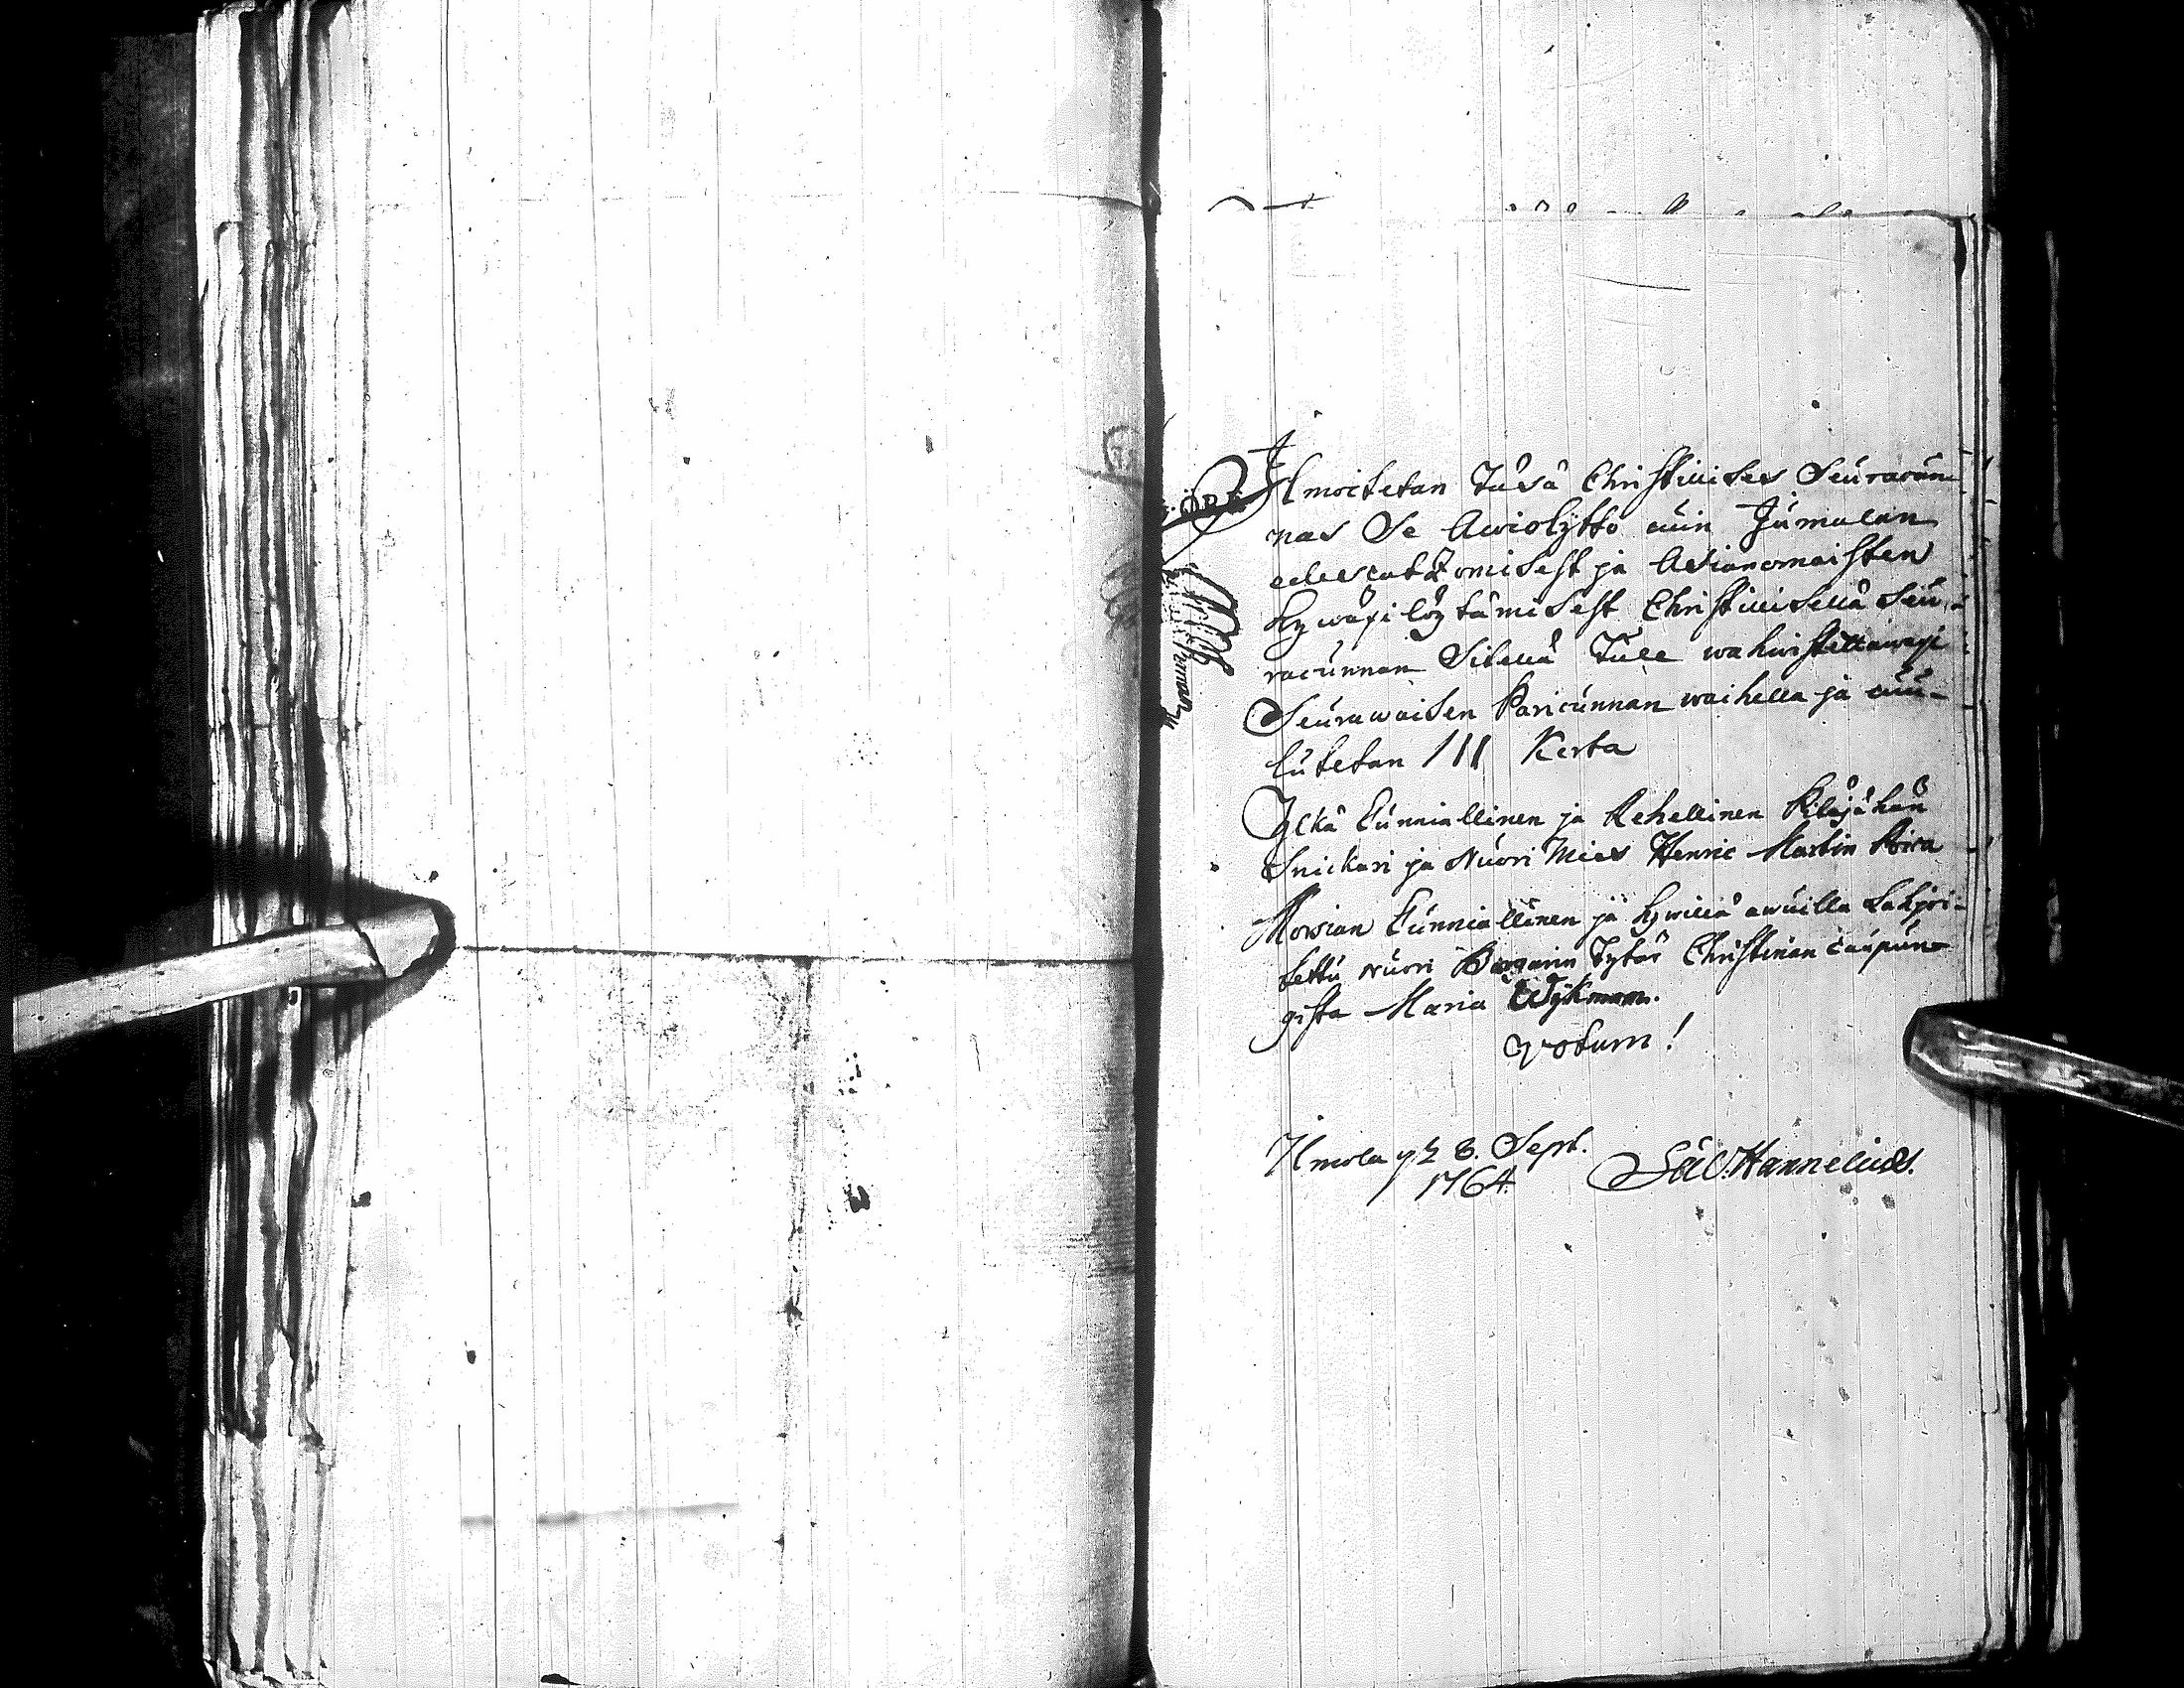 Ilmoitetan Täsä Christillises Seuracun-
nas Se Awiolijtto cuin Jumalan
edescatzomisest ja Asianomaisten
hywäxi löytämisest Christillisellä Seu-
racunnan Sitellä Tule wahwistettawaxi
Seurawaisen Paricunnan waihella ja cuu-
lutetan III Kerta
Ylkä Cunniallinen ja Rehellinen Pitäjähän
Snickari ja Nuori Mies Henric Martin Poica
Morsian Cunniallinen ja hywillä awuilla Lahjoi-
tettu nuori Borgarin Tytär Christinan caupun-
gista Maria Wijkman.
votum!
Ilmola pä 8. Sept.
1764.
Sal. Hannelius.